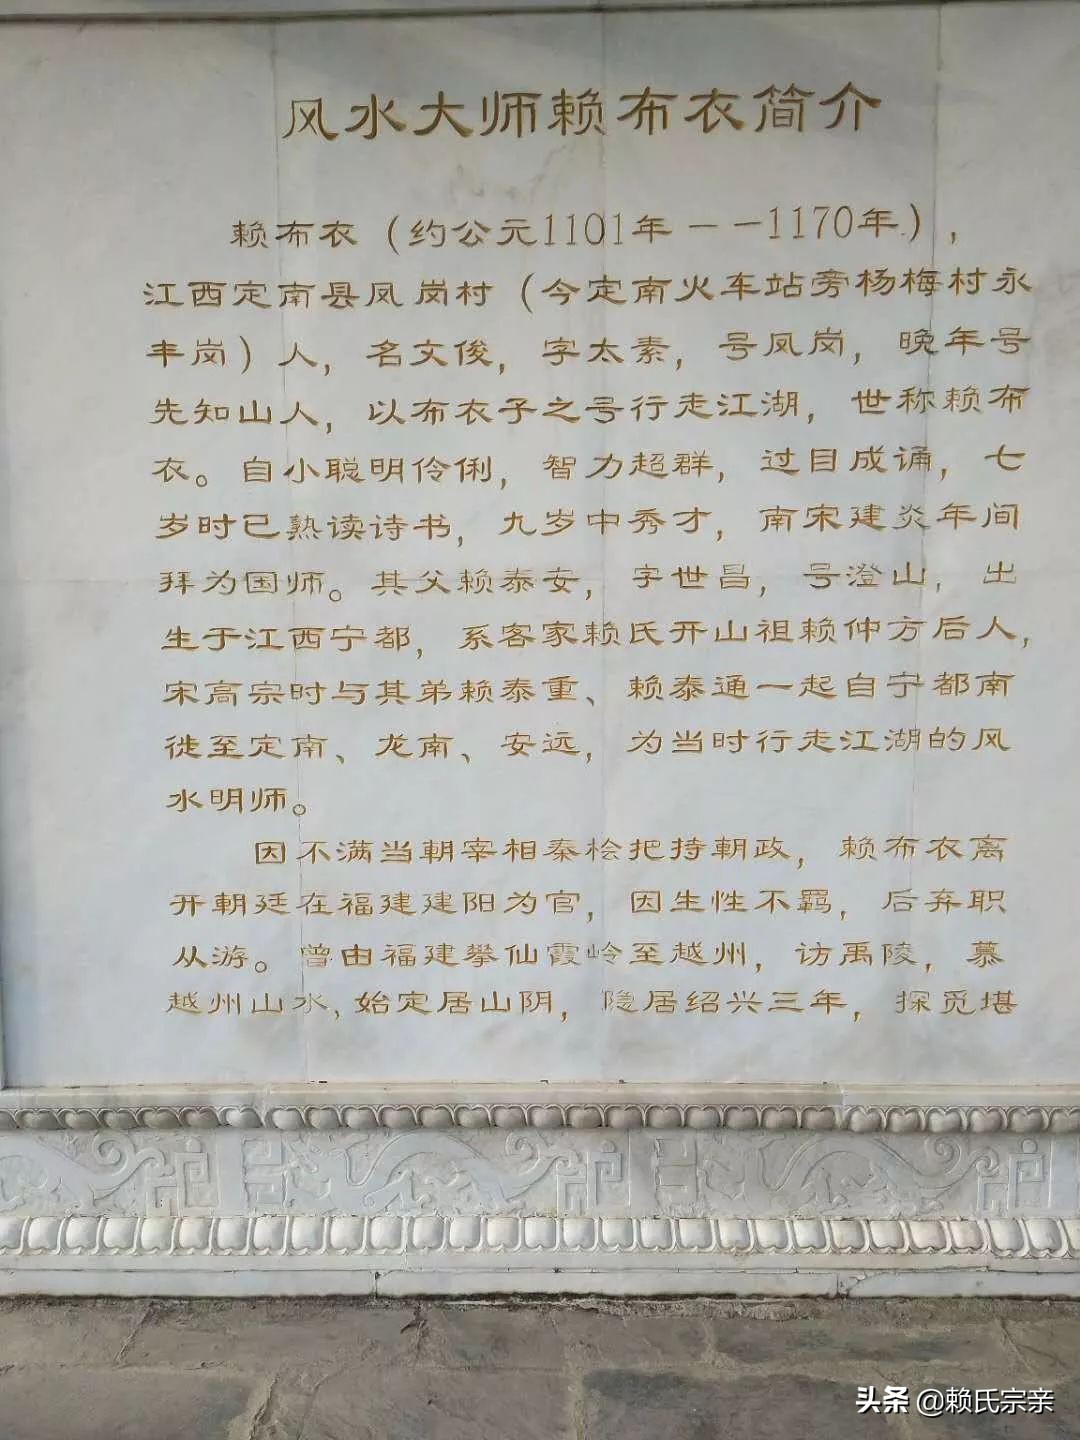 风水大师赖布衣简介
赖布衣（约公元1101年－－1170年），
江西定南县凤岗村（今定南火车站旁杨梅村永
丰岗）人，名文俊，字太素，号凤岗，晚年号
先知山人，以布衣子之号行走江湖，世称赖布
衣。自小聪明伶俐，智力超群，过目成诵，七
岁时已熟读诗书，九岁中秀才，南宋建炎年间
拜为国师。其父赖泰安，字世昌，号澄山，出
生于江西宁都，系客家赖氏开山祖赖仲方后人，
宋高宗时与其弟赖泰重、赖泰通一起自宁都南
徙至定南、龙南、安远，为当时行走江湖的风
水明师。
因不满当朝宰相秦桧把持朝政，赖布衣离
开朝廷在福建建阳为官，因生性不羁，后弃职
从游。曾由福建攀仙霞岭至越州，访禹陵，慕
越州山水，始定居山阴，隐居绍兴三年，探觅堪
头条 @赖氏宗亲